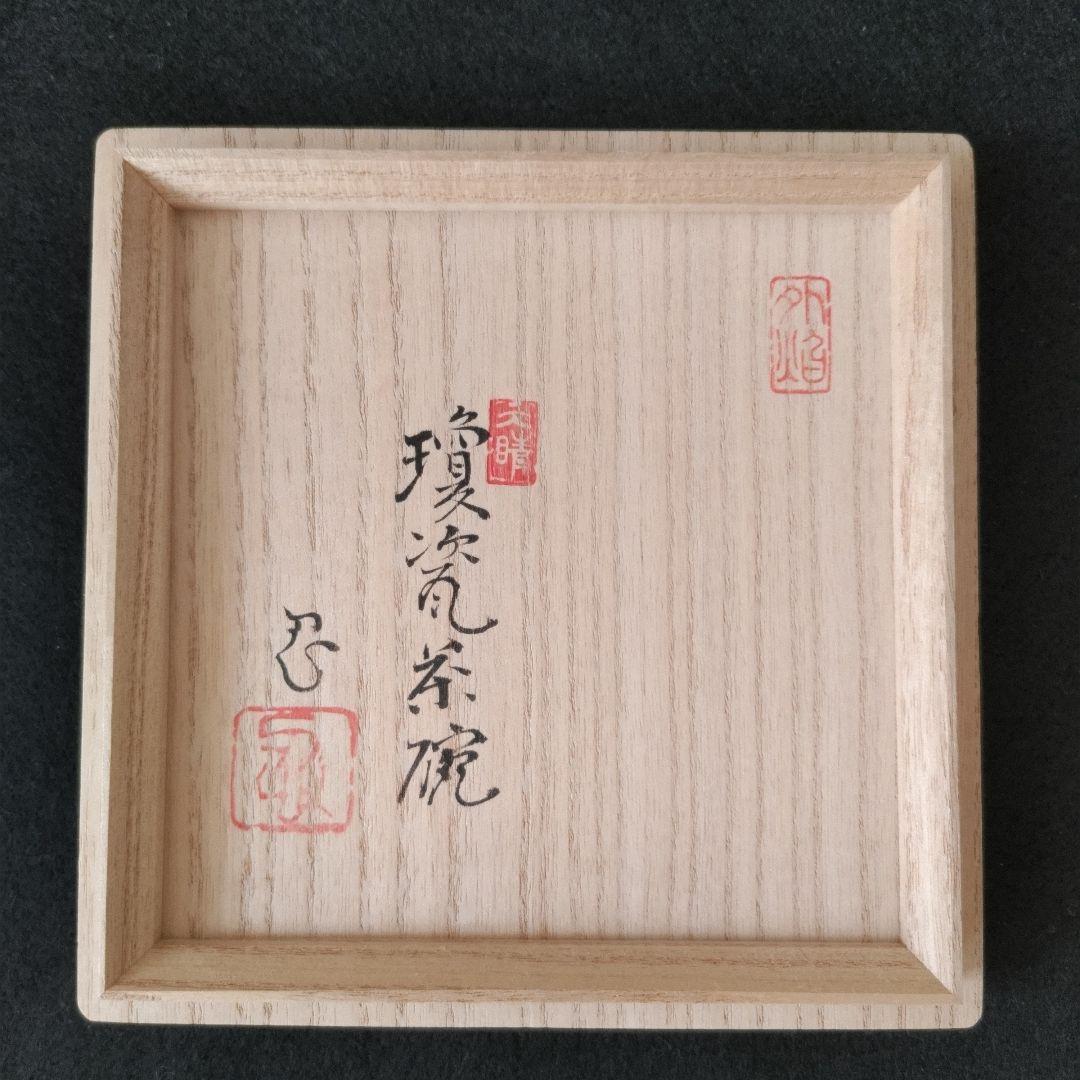 外焰
大晴
瓊瓷茶碗
忍